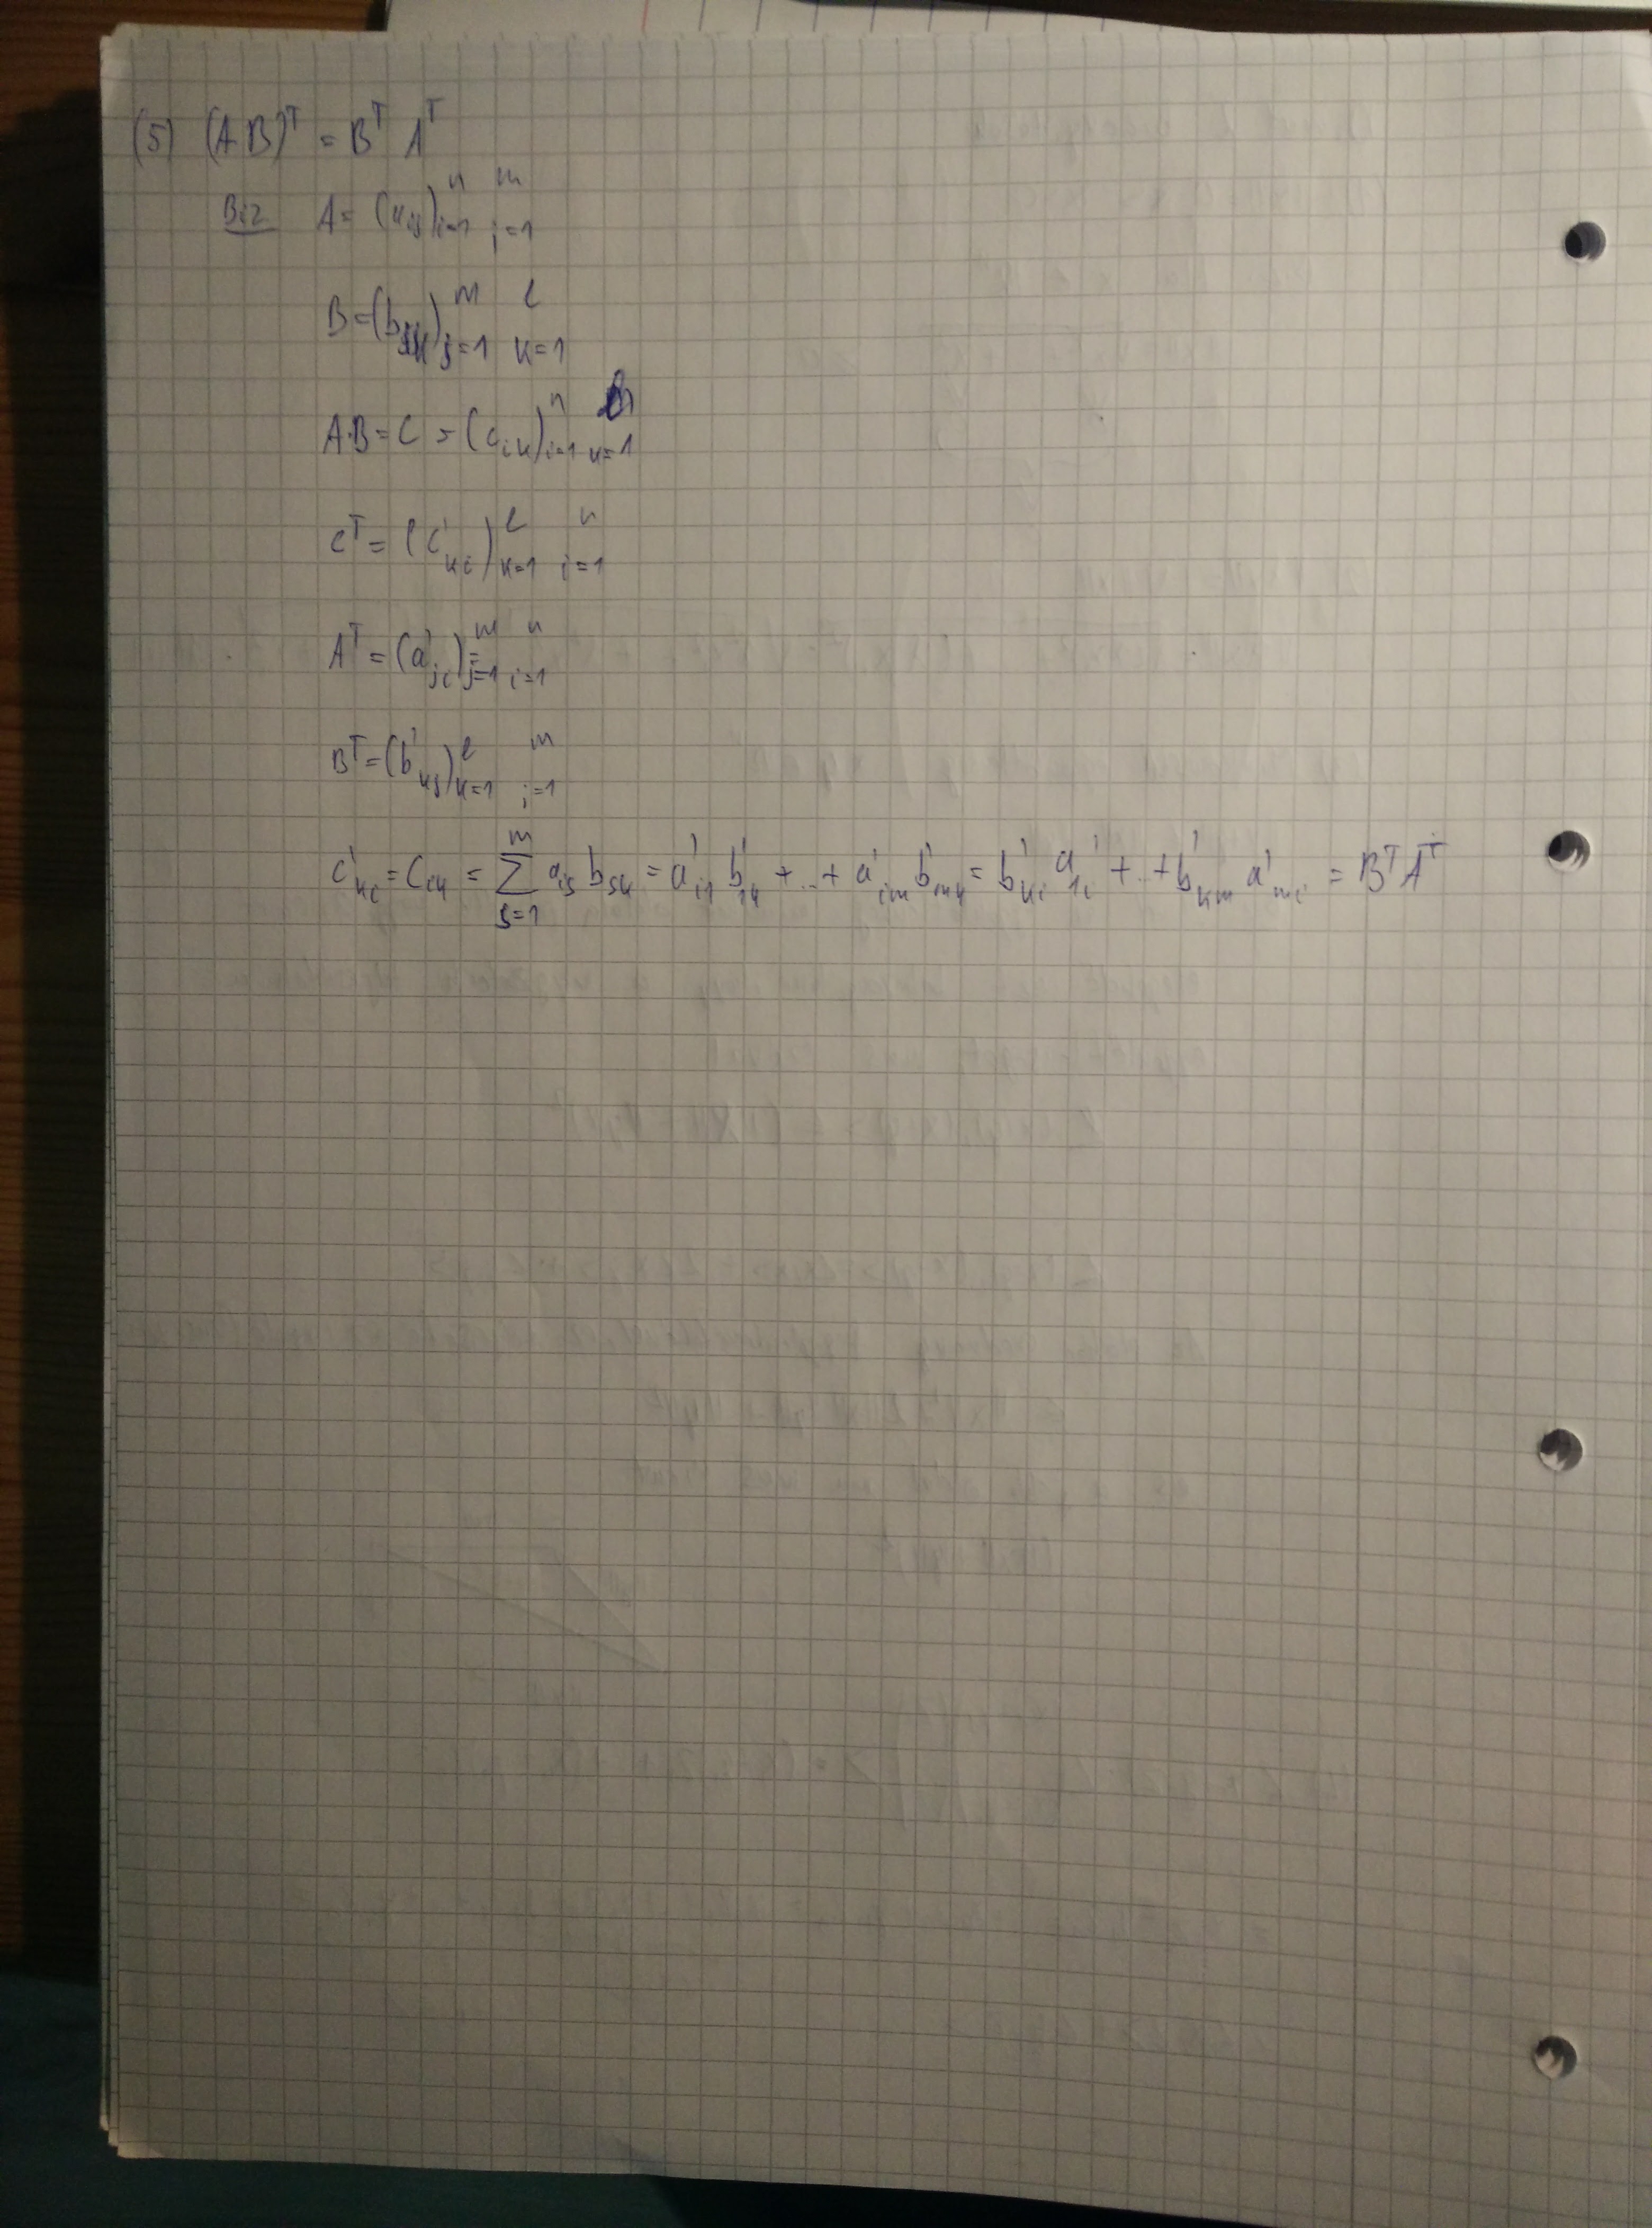 (5) (A B)ᵀ = Bᵀ Aᵀ
Biz A = (a_ij)_{i=1}^{n} _{j=1}^{m}
B = (b_jk)_{j=1}^{m} _{k=1}^{l}
A·B = C = (c_ik)_{i=1}^{n} _{k=1}^{l}
Cᵀ = (c'_ki)_{k=1}^{l} _{i=1}^{n}
Aᵀ = (a'_ji)_{j=1}^{m} _{i=1}^{n}
Bᵀ = (b'_kj)_{k=1}^{l} _{j=1}^{m}
c'_ki = c_ik = ∑_{j=1}^{m} a_ij b_jk = a'_i1 b'_1k + ... + a'_im b'_mk = b'_ki a'_1i + ... + b'_km a'_mi = Bᵀ Aᵀ